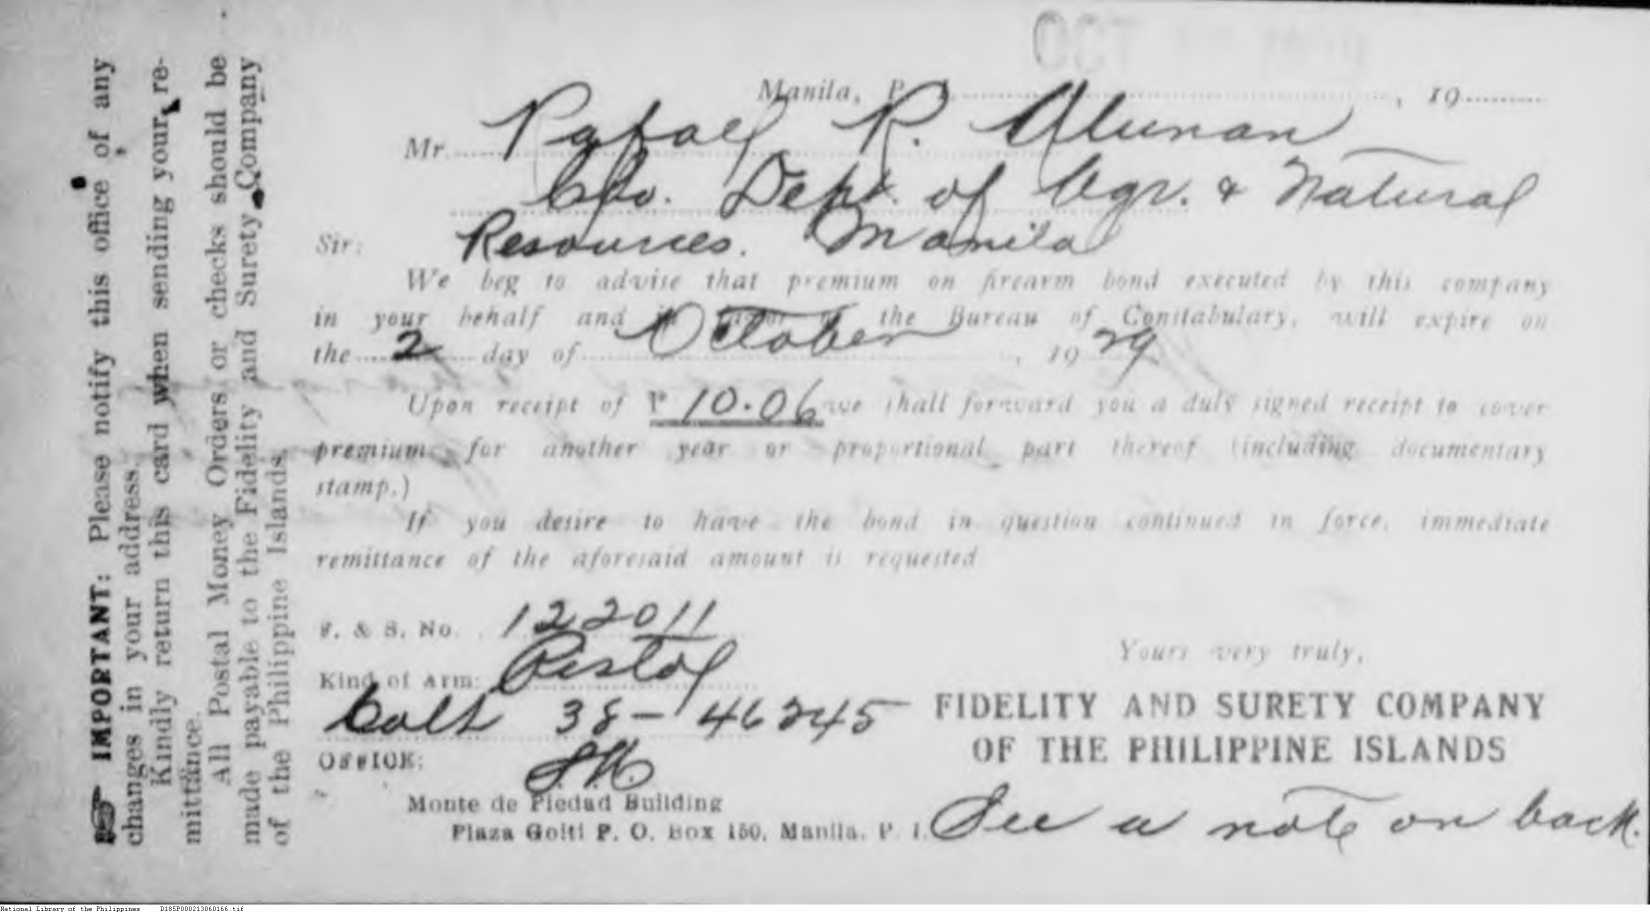 IMPORTANT: Please notify this office of any
changes in your address.
Kindly return this card when sending your re-
mittance.
All Postal Money Orders or checks should be
made payable to the Fidelity and Surety Company
of the Philippine Islands.
Manila, P. I. , 19
Mr. Rafael R. Alunan
c/o. Dept. of Agr. & Natural
Resources. Manila
Sir:
We beg to advise that premium on firearm bond executed by this company
in your behalf and in favor of the Bureau of Constabulary, will expire on
the 2 day of October , 1929
Upon receipt of P 10.06 we shall forward you a duly signed receipt to cover
premium for another year or proportional part thereof (including documentary
stamp.)
If you desire to have the bond in question continued in force, immediate
remittance of the aforesaid amount is requested
F. & S. No. 122011
Kind of Arm: Pistol
Colt 38-46245
OFFICE:
Monte de Piedad Building
Plaza Goiti P. O. Box 150, Manila, P. I.
Yours very truly,
FIDELITY AND SURETY COMPANY
OF THE PHILIPPINE ISLANDS
See a note on back.
National Library of the Philippines D185P000213060166.tif